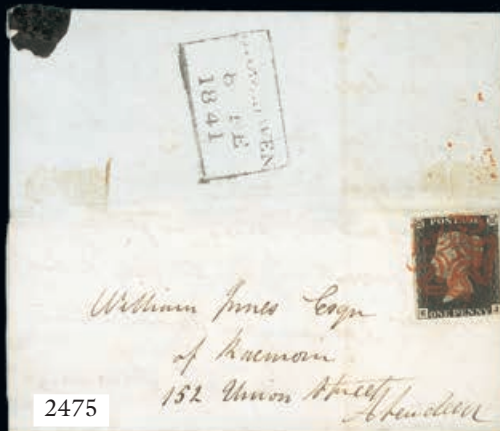 6 FE
1841
POSTAGE
ONE PENNY
William Innes Esqr
of Raemoir
152 Union Street
Aberdeen
2475